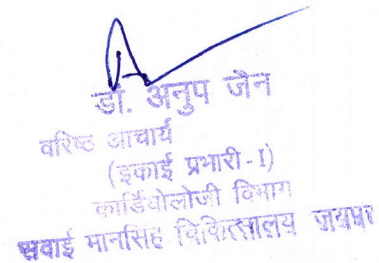 डॉ. अनुप जैन
वरिष्ठ आचार्य
(इकाई प्रभारी - I)
कार्डियोलोजी विभाग
सवाई मानसिंह चिकित्सालय जयपुर